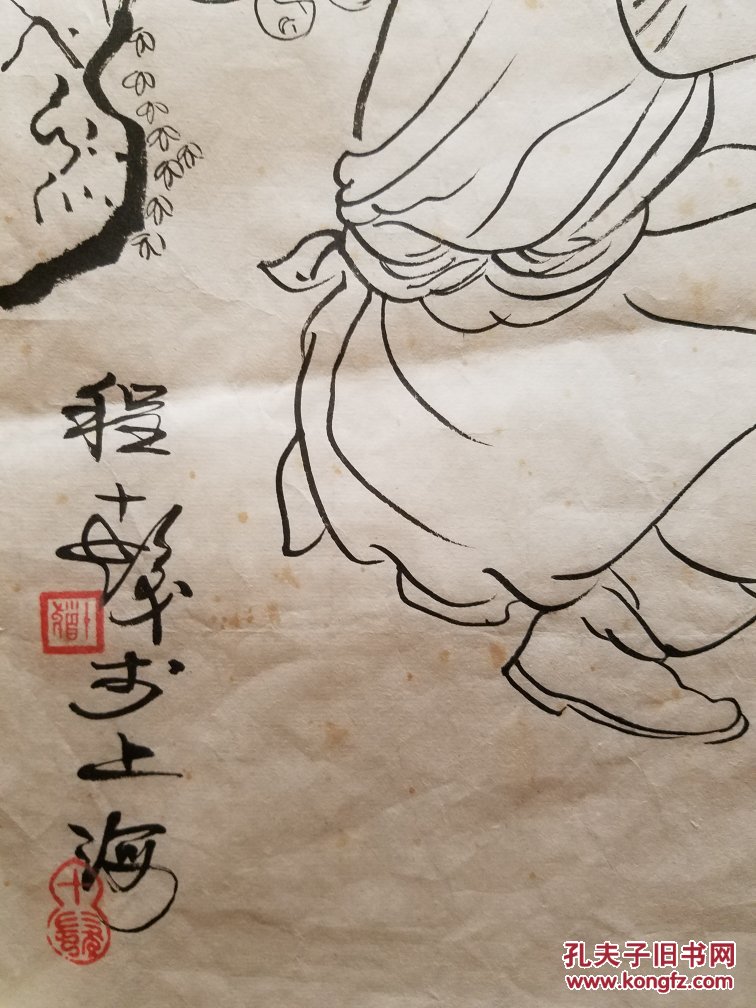 程十髮于上海
十髮
孔夫子旧书网
www.kongfz.com